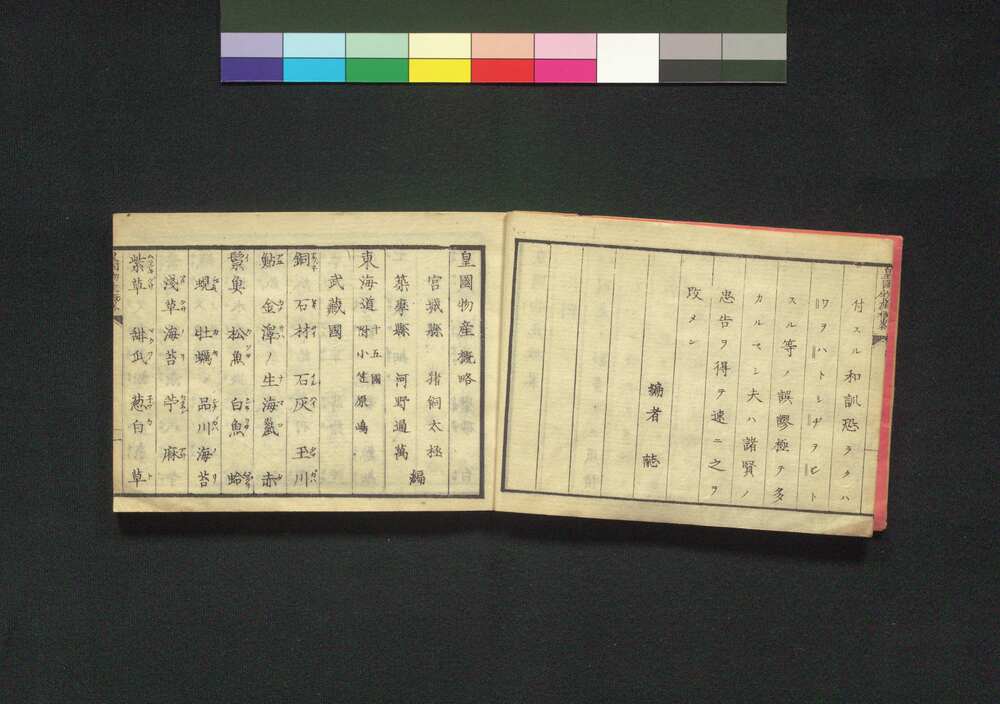 付スル和訓恐ラクハ
ワヲハトシヂヲヒト
スル等ノ誤謬極テ多
カルヘシ夫ハ諸賢ノ
忠告ヲ得テ速ニ之ヲ
改メン
編者 誌
皇國物産概略
宮城縣 猪飼太極
築摩縣 河野通萬
編
東海道十五國附小笠原嶋
武藏國
銅 石材 石灰 玉川
鮎 金澤ノ生海鼠 赤
鬃魚 松魚 白魚 蛤
蜆 牡蠣 品川海苔
淺草海苔 苧 麻
紫草 甜瓜 葱 白草